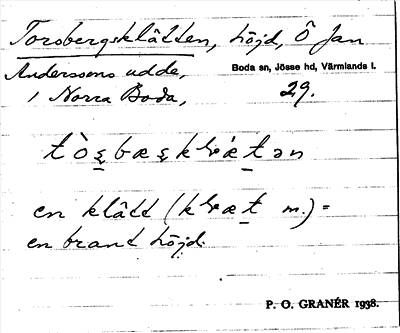 Torsbergsklätten, höjd, Ö Jan
Anderssons udde,
Boda sn, Jösse hd, Värmlands l.
1 Norra Boda,
29.
en klätt (
m.) =
en brant höjd.
P. O. GRANÉR 1938.